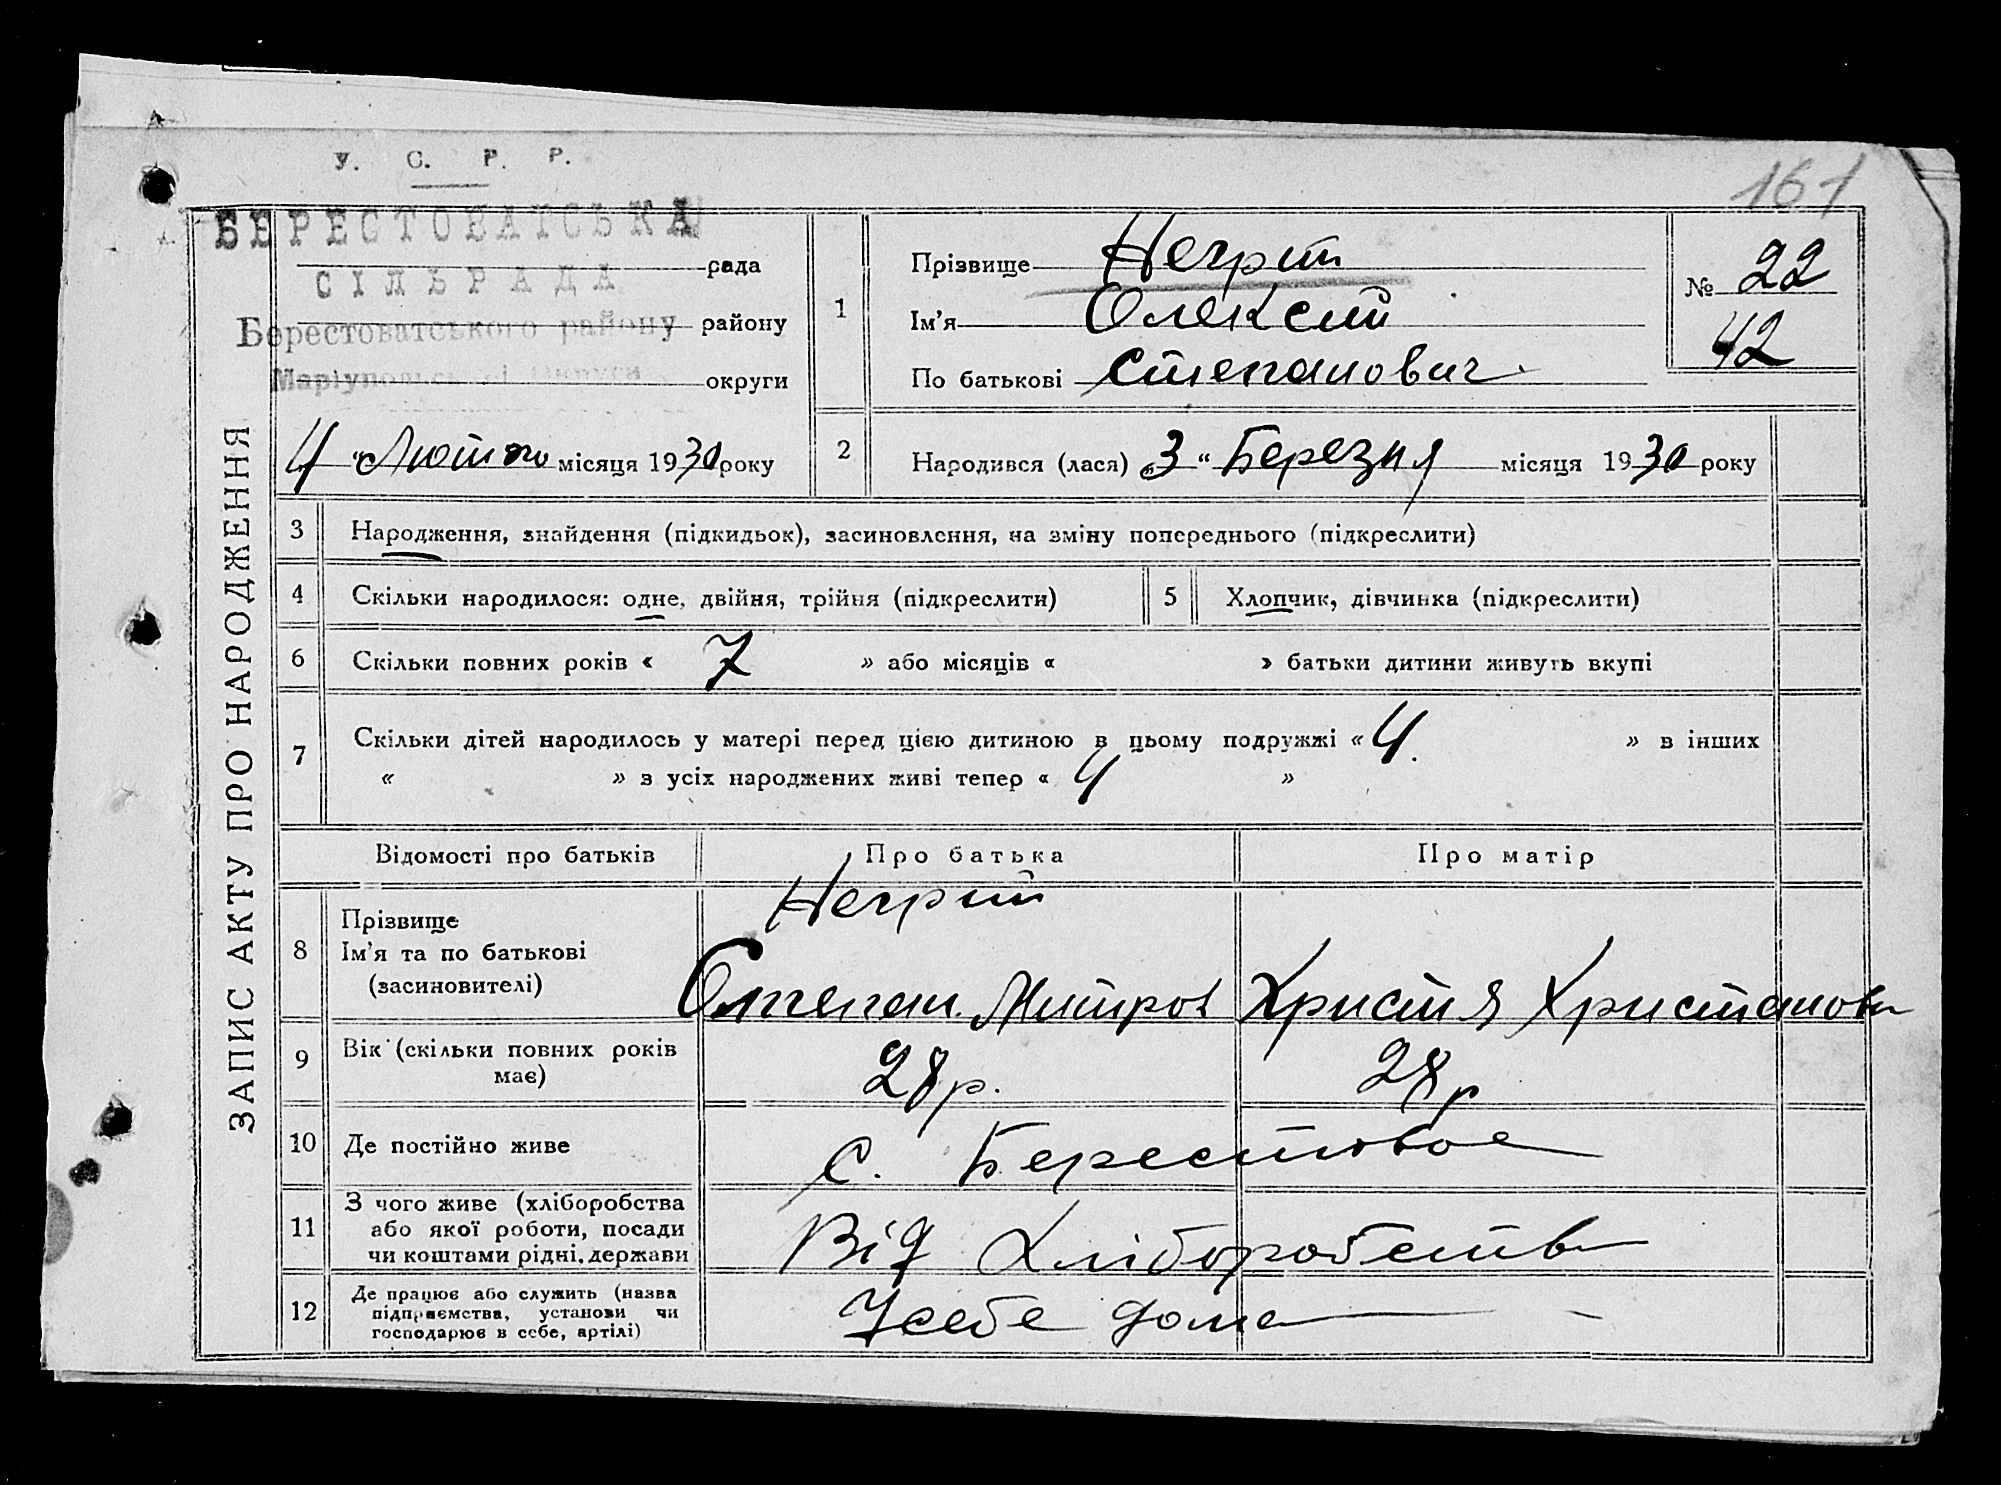 161
У. С. Р. Р.
БЕРЕСТОВАТСЬКА
рада
СІЛЬРАДА
Берестоватського району району
Маріупольської округи
4 " Лютого місяця 1930 року
ЗАПИС АКТУ ПРО НАРОДЖЕННЯ
1
Прізвище Негрит
Ім'я Олексій
По батькові Степанович
№ 22
42
2 Народився (лася) „3“ Березня місяця 1930 року
3 Народження, знайдення (підкидьок), засиновлення, на зміну попереднього (підкреслити)
4 Скільки народилося: одне, двійня, трійня (підкреслити) 5 Хлопчик, дівчинка (підкреслити)
6 Скільки повних років « 7 » або місяців « » батьки дитини живуть вкупі
7 Скільки дітей народилось у матері перед цією дитиною в цьому подружжі « 4 » в інших
« » з усіх народжених живі тепер « 4 »
Відомості про батьків Про батька Про матір
8 Прізвище
Ім'я та по батькові
(засиновителі)
Негрит
Степан Митров Христя Христанов
9 Вік (скільки повних років
має)
28 р. 28 р
10 Де постійно живе с. Берестовое
11 З чого живе (хліборобства
або якої роботи, посади
чи коштами рідні, держави
Від Хліборобств
12 Де працює або служить (назва
підприємства, установи чи
господарює в себе, артілі)
У себе дома